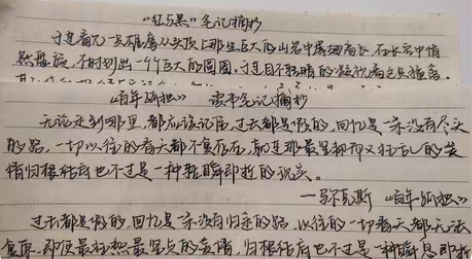 "红与黑" 笔记摘抄
于连看见一只雄鹰从头顶上那些巨大的山岩中展翅而出,在长空中悄
然盘旋,不时划出一个个巨大的圆圈。于连目不转睛的
《百年孤独》 读书笔记摘抄
无论走到哪里,都应该记住,过去都是假的,回忆是一条没有尽头
的路,一切以往的春天都不复存在,就连那最坚韧而又狂乱的爱
情归根结底也不过是一种转瞬即逝的现实。
——马尔克斯 《百年孤独》
过去都是假的,回忆是一条没有归途的路,以往的一切春天都无法
复原,即使最狂热最坚贞的爱情,归根结底也不过是一种瞬息即逝